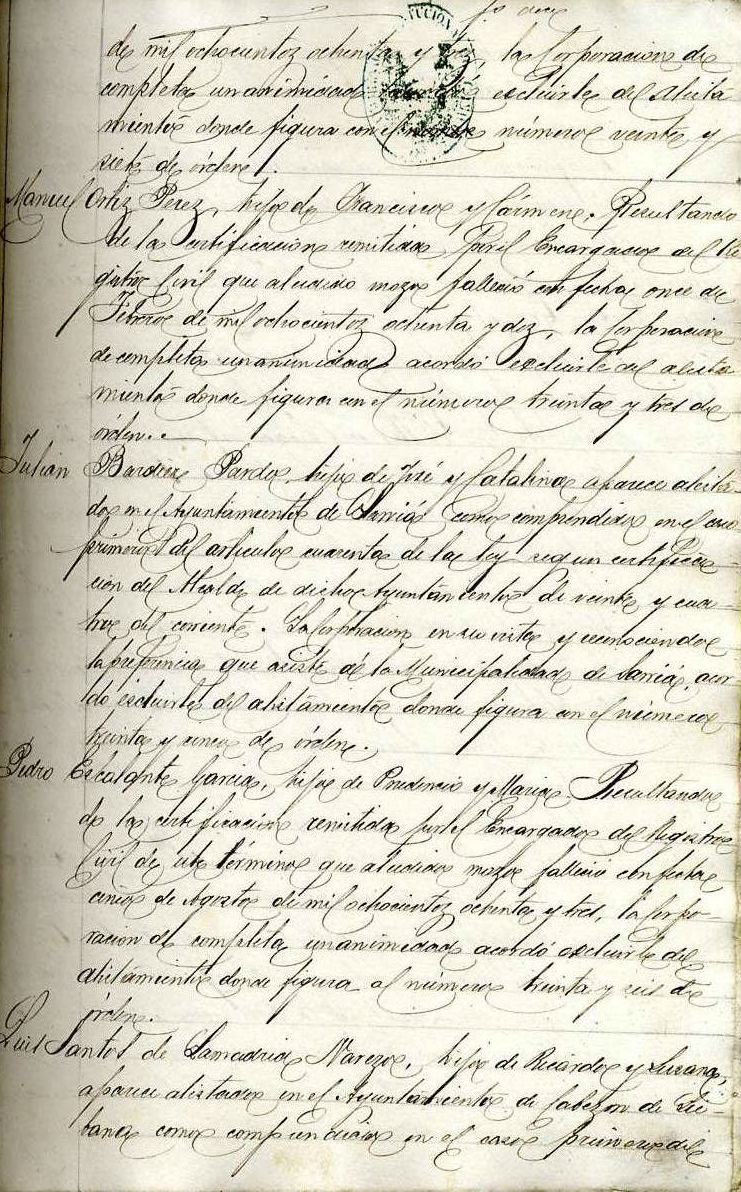 de mil ochocientos ochenta y la Corporacion de
completa unanimidad excluirle del alista
miento donde figura con el número veinte y
siete de órden.
Manuel Ortiz Perez, hijo de Francisco y Cármen. Resultando
de la certificacion remitida por el Encargado del Re
gistro Civil que aludido mozo falleció con fecha once de
Febrero de mil ochocientos ochenta y diez, la Corporacion
de completa unanimidad acordó excluirle del alista
miento donde figura con el número treinta y tres de
órden.
Julián Pardo, hijo de José y Catalina aparece alista-
do en el Ayuntamiento de Sarriá como comprendido en el caso
primero del artículo cuarenta de la ley segun certifica-
cion del Alcalde de dicho Ayuntamiento de veinte y cua-
tro del corriente. La Corporacion en su vista y reconociendo
la preferencia que asiste á la Municipalidad de Sarriá, acor
dó excluirle del alistamiento donde figura con el número
treinta y cinco de órden.
Pedro Escalante Garcia, hijo de Prudencio y Maria Resultando
de la certificacion remitida por el Encargado del Registro
Civil de este término que aludido mozo falleció con fecha
cinco de Agosto de mil ochocientos ochenta y tres, la Corpo-
racion de completa unanimidad acordó excluirle del
alistamiento donde figura al número treinta y seis de
órden.
Luis Santos de Lamadrid Narezo, hijo de Ricardo y Susana,
aparece alistado en el Ayuntamiento de Cabezon de Lié-
bana como comprendido en el caso primero del